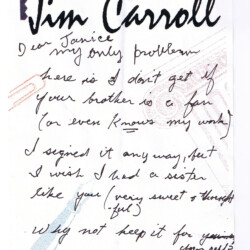 Jim Carroll
Dear Janice
my only problem
here is I don't get if
your brother is a fan
(or even Knows my work)
I signed it any way, but
I wish I had a sister
like you (very sweet & thought
-ful)
Why not keep it for